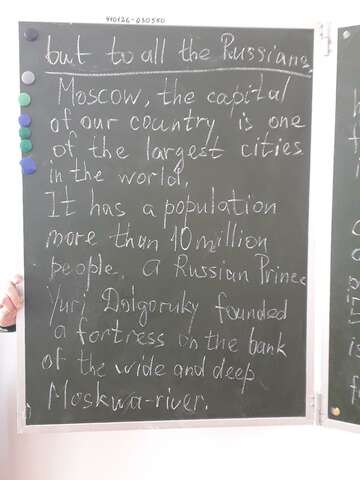 410126-030540
but to all the Russians.
Moscow, the capital
of our country is one
of the largest cities
in the world.
It has a population
more than 10 million
people. a Russian Prince
Yuri Dolgoruky founded
a fortress on the bank
of the wide and deep
Moskwa-river.